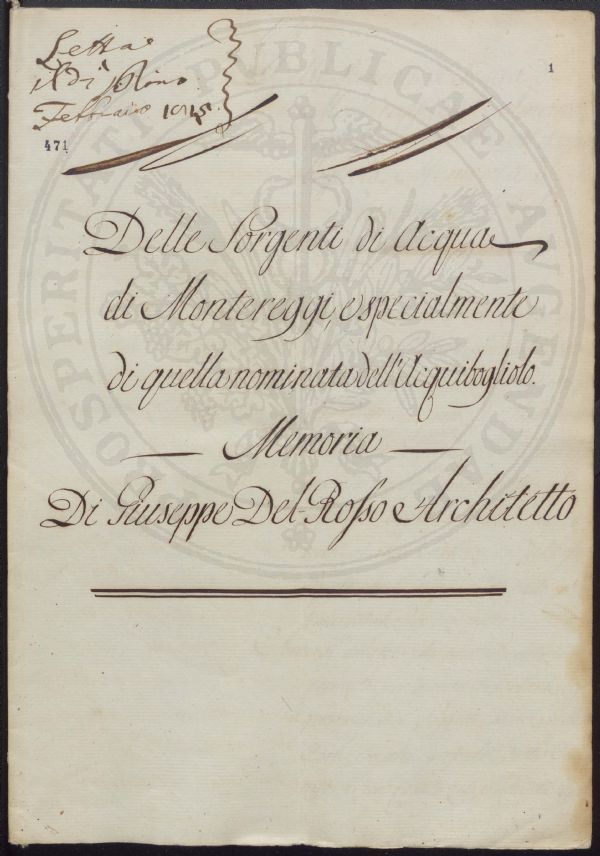 Letta
il dì Primo
Febbraio 1815
1
471
Delle Sorgenti di Acqua
di Montereggi, e specialmente
di quella nominata dell'Acquibogliolo.
Memoria
Di Giuseppe Del-Rosso Architetto
PROSPERITATI PUBLICAE AUGENDAE